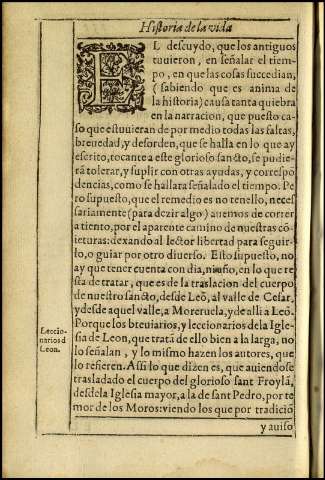 Historia de la vida
EL descuydo, que los antiguos
tuuieron, en señalar el tiem-
po, en que las cosas succedian,
( sabiendo que es anima de
la historia) causa tanta quiebra
en la narracion, que puesto ca-
so que estuuieran de por medio todas las faltas,
breuedad, y desorden, que se halla en lo que ay
escrito, tocante a este glorioso sancto, se pudie-
rá tolerar, y suplir con otras ayudas, y correspó
dencias, como se hallara señalado el tiempo. Pe
ro supuesto, que el remedio es no tenello, neces
sariamente (para dezir algo) auemos de correr
a tiento, por el aparente camino de nuestras có-
ieturas: dexando al lector libertad para seguir-
lo, o guiar por otro diuerso. Esto supuesto, no
ay que tener cuenta con dia, ni año, en lo que re
sta de tratar, que es de la traslacion del cuerpo
de nuestro sancto, desde Leó, al valle de Cesar,
y desde aquel valle, a Moreruela, y de alli a Leó.
Leccio-
narios d
Leon.
Porque los breuiarios, y leccionarios de la Igle-
sia de Leon, que tratá de ello bien a la larga, no
lo señalan, y lo mismo hazen los autores, que
lo refieren. Assi lo que dizen es, que auiendose
trasladado el cuerpo del glorioso sant Froylá,
desde la Iglesia mayor, a la de sant Pedro, por te
mor de los Moros: viendo los que por tradició
y auiso